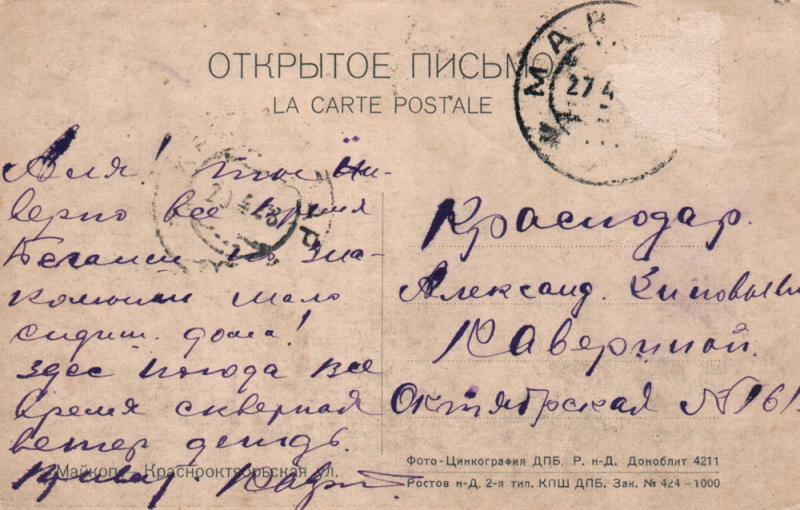 ОТКРЫТОЕ ПИСЬМО
LA CARTE POSTALE
МА
27 4
Аля! ты на-
верно все время
бегаешь по зна-
комыми мало
сидиш. дома!
здес погода все
время скверная
ветер дождь.
Майкоп. Краснооктябрьская ул.
Краснодар.
Александ. Зиновьевн
Кавериной.
Октябрская № 161
Фото-Цинкография ДПБ. Р. н-Д. Доноблит 4211
Ростов н-Д. 2-я тип. КПШ ДПБ. Зак. № 424—1000